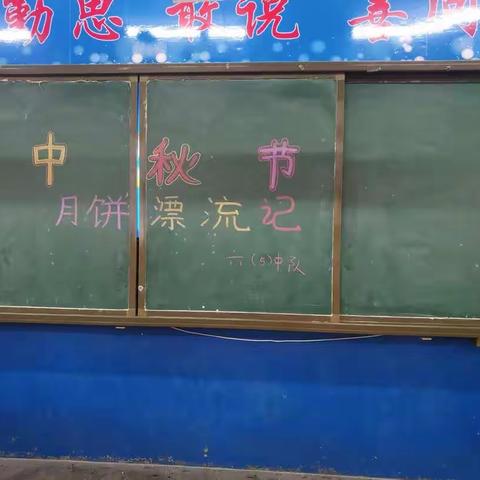 勤思 敢说 善问
中秋节
月饼漂流记
六(5)中队